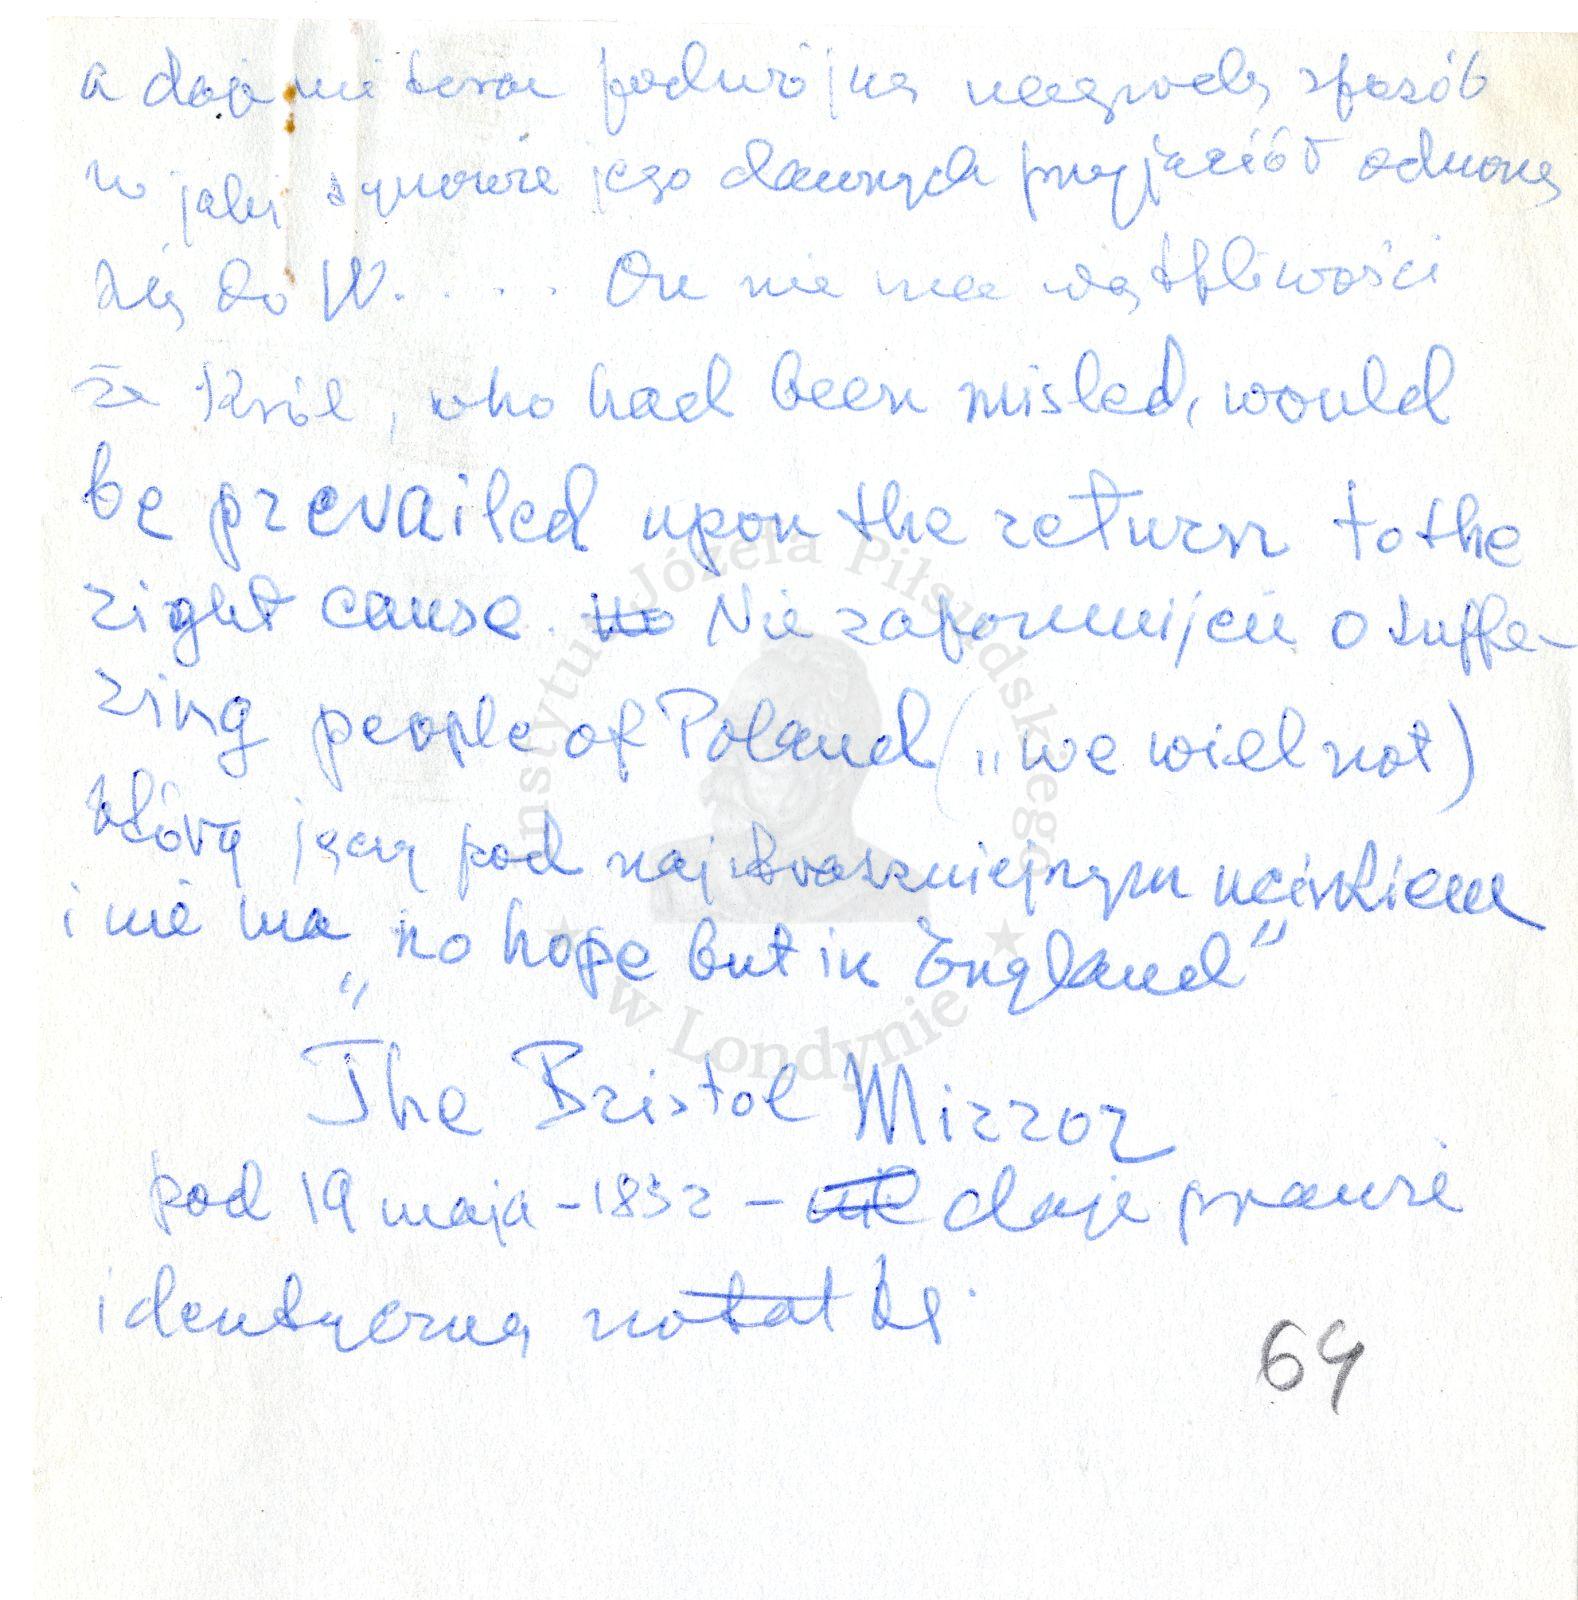 a daje mi teraz podwójną nagrodę sposób
w jaki synowie jego dawnych przyjaciół odnoszą
się do W. . . . On nie ma wątpliwości
że Król, who had been misled, would
be prevailed upon the return to the
right cause. Nie zapomnijcie o suffe-
ring people of Poland („we will not)
który jęczy pod najstraszniejszym uciskiem
i nie ma „no hope but in England"
The Bristol Mirror
pod 19 maja - 1832 - daje prawie
identyczną notatkę.
64
Instytut Józefa Piłsudskiego
w Londynie